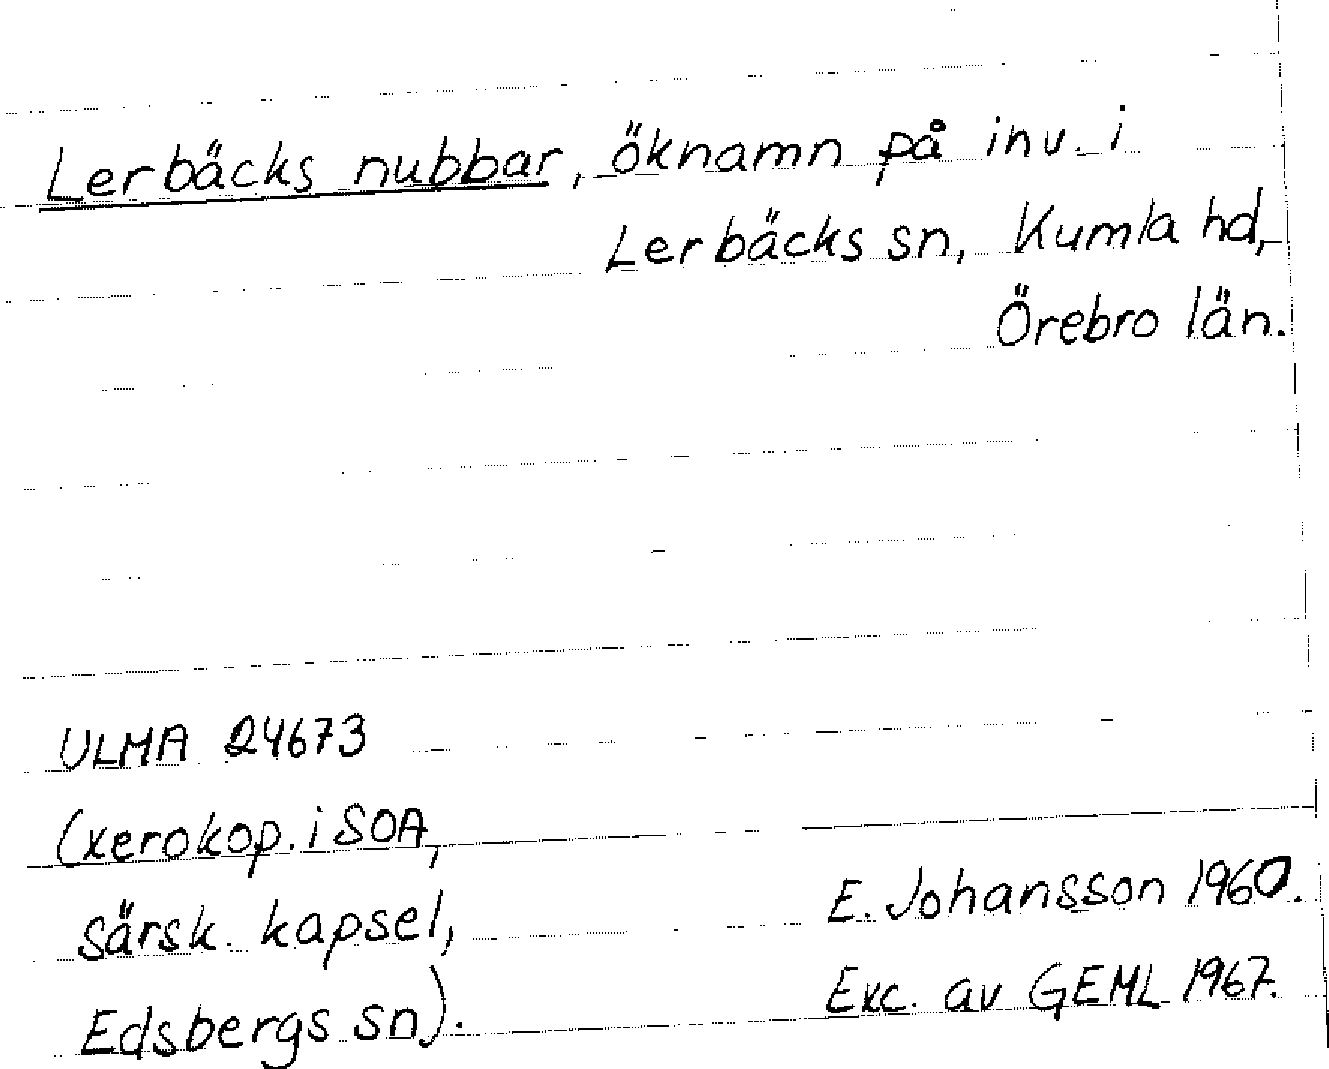 Lerbäcks nubbar, öknamn på inv. i
Lerbäcks sn, Kumla hd,
Örebro län.
ULMA 24673
(xerokop. i SOA,
särsk. kapsel,
Edsbergs sn).
E. Johansson 1960.
Exc. av GEML 1967.